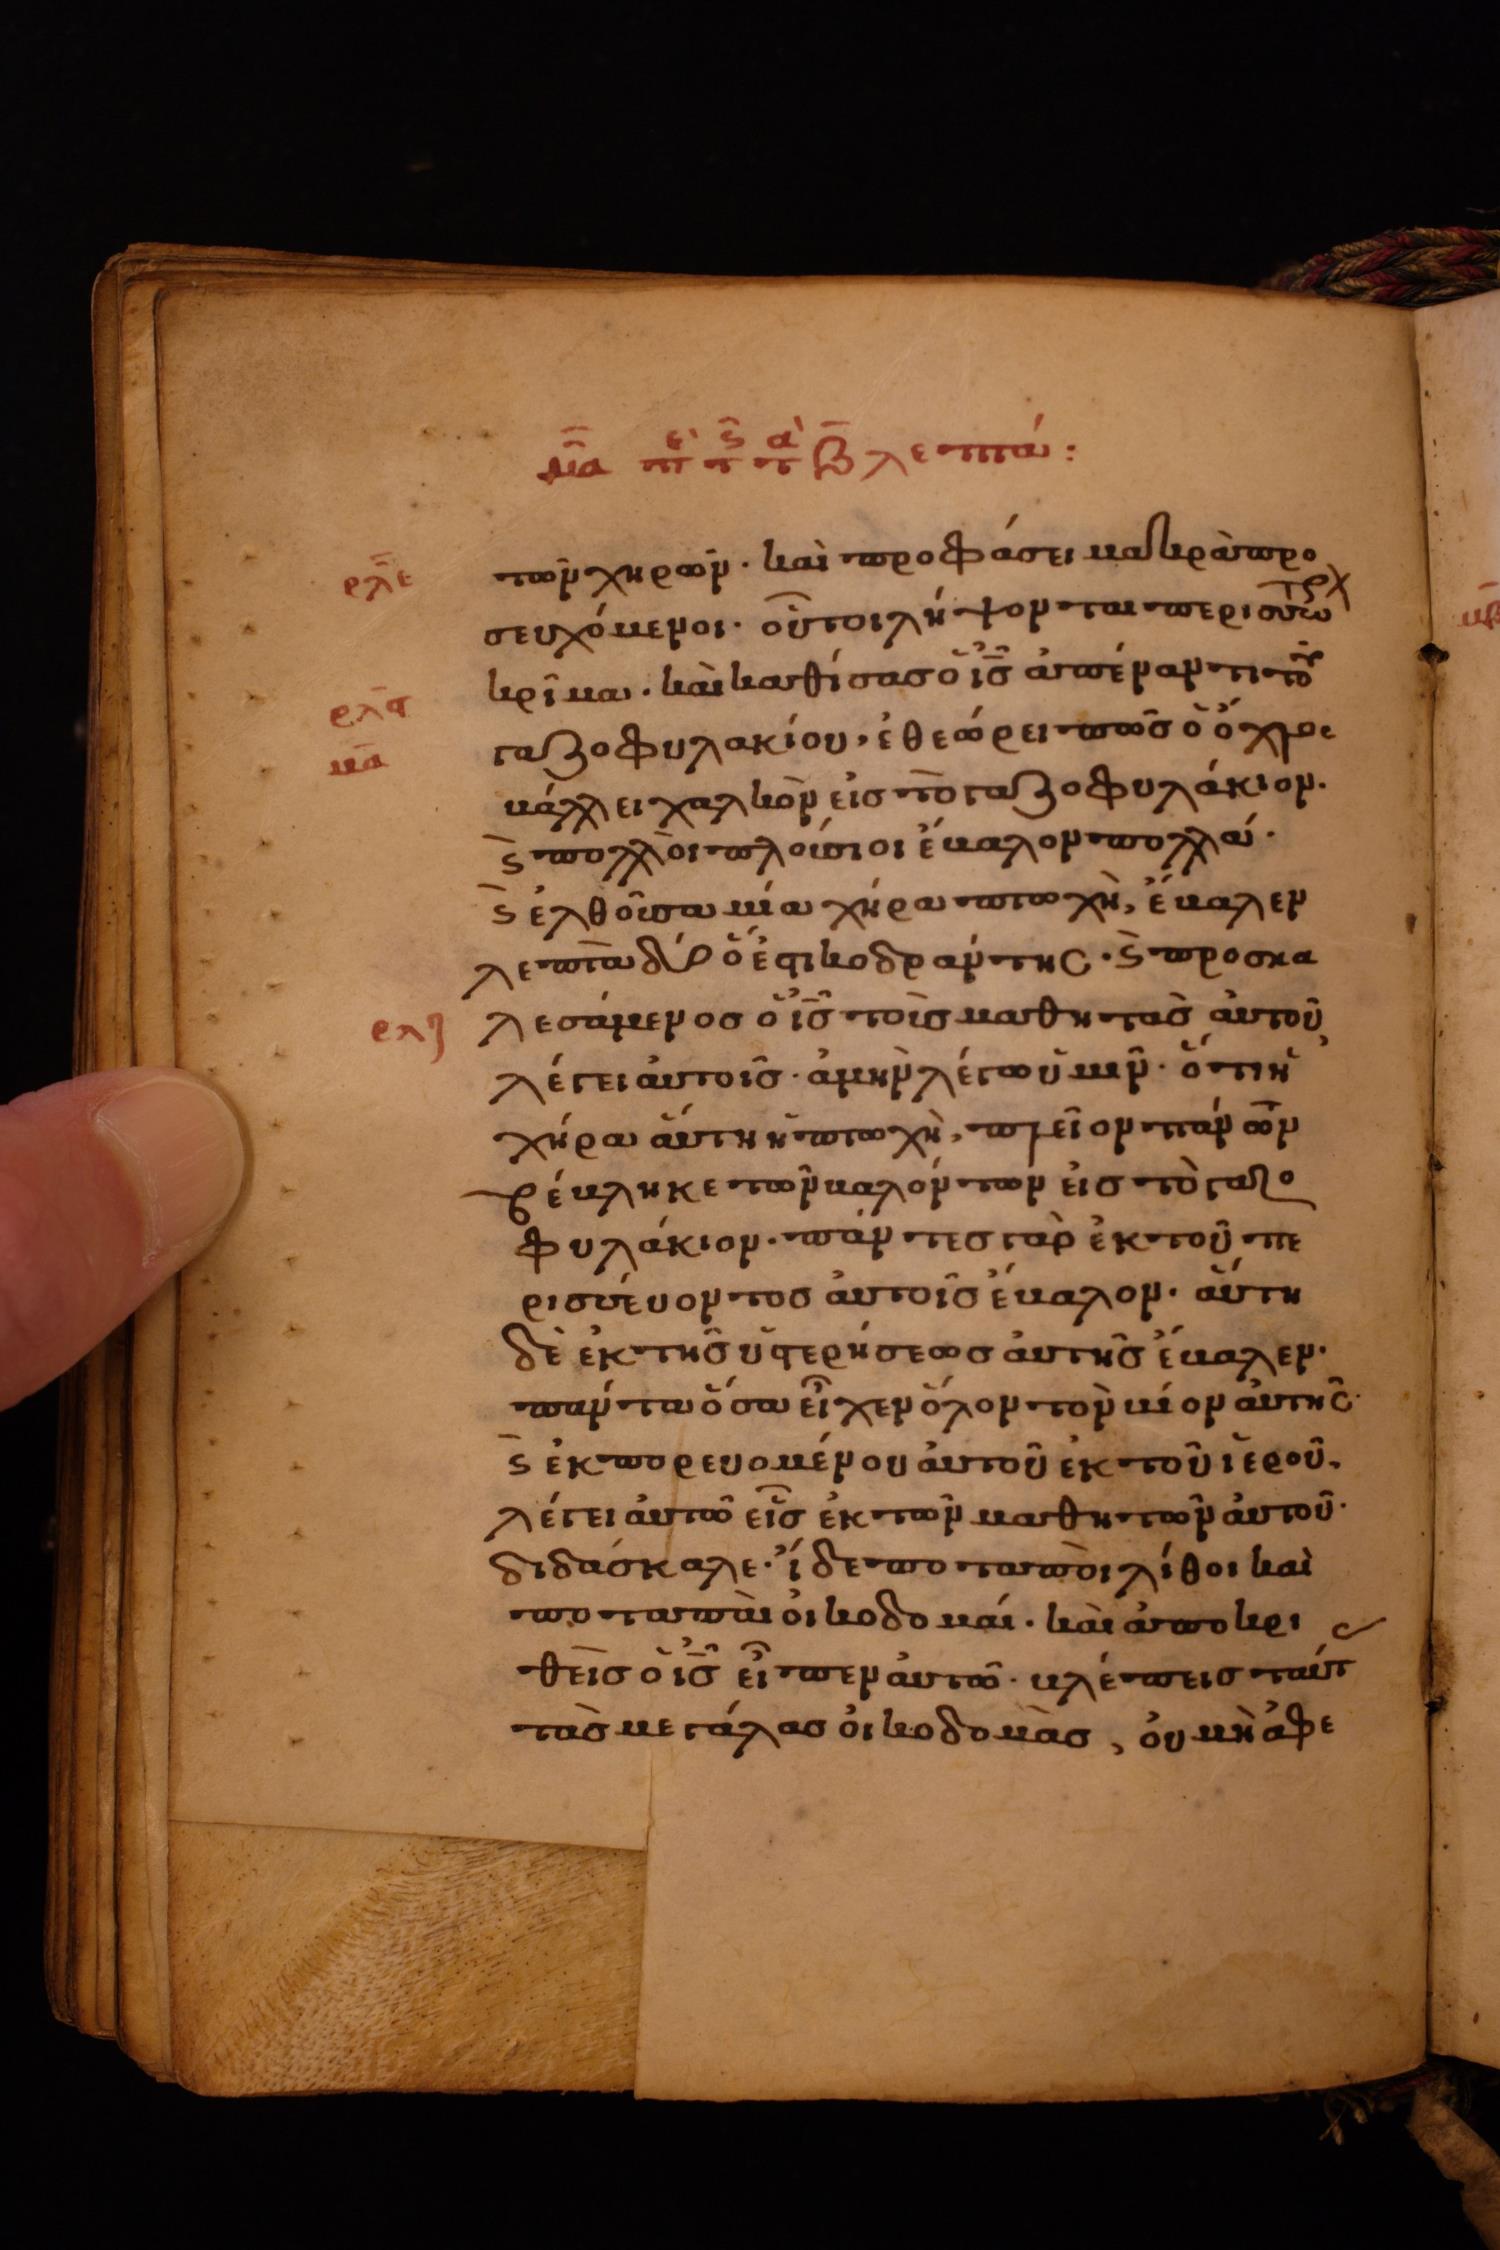 μ̅α̅ π̅ε̅ρ̅ὶ̅ τ̅ῆ̅ς̅ τ̅ὰ̅ β̅ λεπτά:
ρλε τῶν χηρῶν· καὶ προφάσει μακρὰ προ
σευχόμενοι· οὗτοι λήψονται περισσότερ
κρῖμα. καὶ καθίσας ὁ ι̅ς̅ ἀπέναντι τοῦ
ρλς
μα γαζοφυλακίου, ἐθεώρει πῶς ὁ ὄχλος
βάλλει χαλκὸν εἰς τὸ γαζοφυλάκιον.
ϛ πολλοὶ πλούσιοι ἔβαλον πολλά·
ϛ ἐλθοῦσα μία χήρα πτωχὴ, ἔβαλεν
λεπτὰ δύο ὅ ἐστι κοδράντης· ϛ προσκα
ρλζ λεσάμενος ὁ ι̅ς̅ τοὺς μαθητὰς αὐτοῦ,
λέγει αὐτοῖς· ἀμὴν λέγω ὑμῖν· ὅτι ἡ
χήρα αὕτη ἡ πτωχὴ, πλεῖον πάντων
βέβληκε τῶν βαλόντων εἰς τὸ γαζο
φυλάκιον· πάντες γὰρ ἐκ τοῦ πε
ρισσεύοντος αὐτοῖς ἔβαλον· αὕτη
δὲ ἐκ τῆς ὑστερήσεως αὐτῆς ἔβαλεν·
πάντα ὅσα εἶχεν ὅλον τὸν βίον αὐτῆς·
ϛ ἐκπορευομένου αὐτοῦ ἐκ τοῦ ἱεροῦ,
λέγει αὐτῶ εἷς ἐκ τῶν μαθητῶν αὐτοῦ·
διδάσκαλε· ἴδε ποταποὶ λίθοι καὶ
ποταπαὶ οἰκοδομαί· καὶ ἀποκρι
θεὶς ὁ ι̅ς̅ εἶπεν αὐτῶ· βλέπεις ταύτ
τὰς μεγάλας οἰκοδομὰς, οὐ μὴ ἀφε